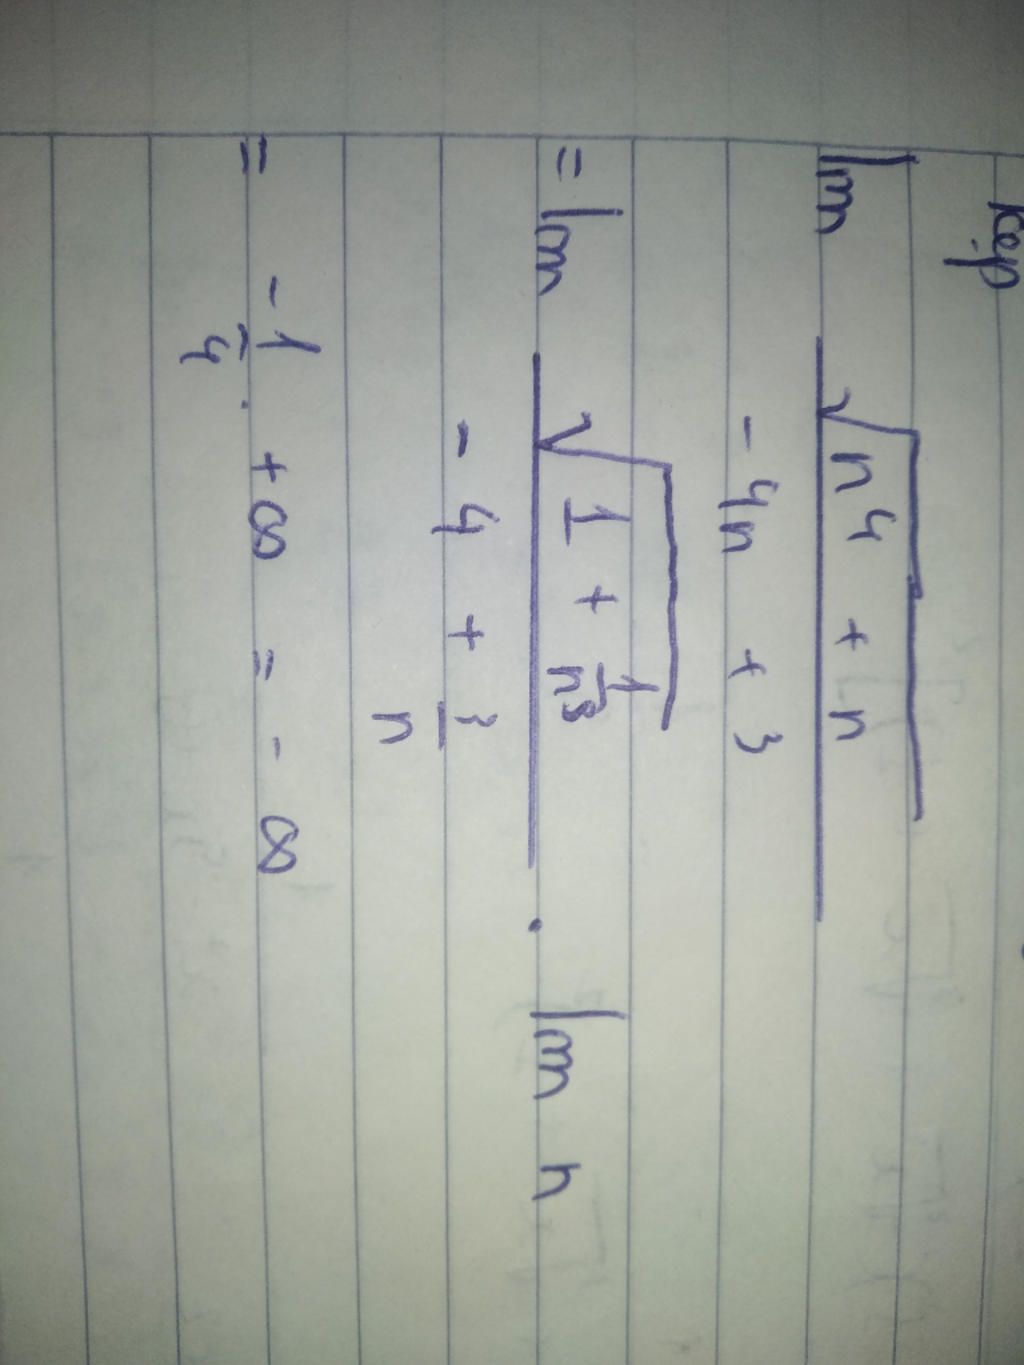 Kẹp
lim √(n⁴ + n) / (-4n + 3)
= lim √(1 + 1/n³) / (-4 + 3/n) . lim n
= -1/4 . +∞ = -∞